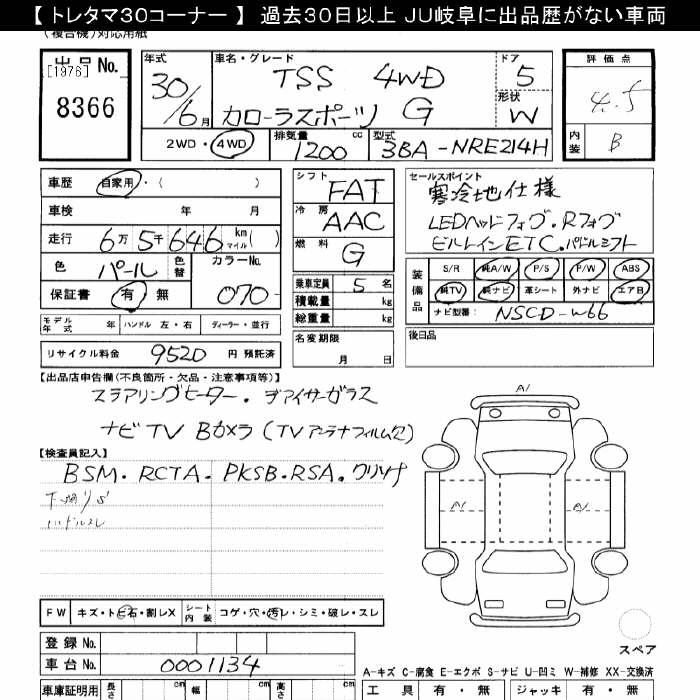 【 トレタマ30コーナー 】 過去30日以上 JU岐阜に出品歴がない車両
(複合機)対応用紙
出品No.
[1976]
8366
年式
30/6月
車名・グレード
TSS 4WD
カローラスポーツ G
ドア
5
形状
W
評価点
4.5
内装
B
2WD・4WD
排気量
1200 cc
型式
3BA-NRE214H
車歴
自家用・( )
車検 年 月
走行 6万5千646 km マイル( )
色 パール 色替
カラーNo. 070
保証書 有 無
モデル年式 年 ハンドル 左・右 ディーラー・並行
リサイクル料金 9520 円 預託済
シフト FAT
冷房 AAC
燃料 G
乗車定員 5 名
積載量 kg
総重量 kg
名変期限
月 日
セールスポイント
寒冷地仕様
LEDヘッドフォグ・Rフォグ
ビルトインETC・パドルシフト
装備品
S/R 純A/W P/S P/W ABS
純TV 純ナビ 革シート 外ナビ エアB
ナビ型番: NSCD-W66
後日品
【出品店申告欄(不良箇所・欠品・注意事項等)】
ステアリングヒーター・デアイサーガラス
ナビTV Bカメラ (TVアンテナフィルム欠)
【検査員記入】
BSM・RCTA・PKSB・RSA・クリソナ
下廻りサビ
ハンドルスレ
A1
A1
A1
スペア
FW キズ・トビ石・割レX シート内装 コゲ・穴・汚レ・シミ・破レ・スレ
登録No.
車台No. 0001134
車庫証明用 長さ cm 幅 cm 高さ cm
A-キズ C-腐食 E-エクボ S-サビ U-凹ミ W-補修 XX-交換済
工具 有・無 ジャッキ 有・無